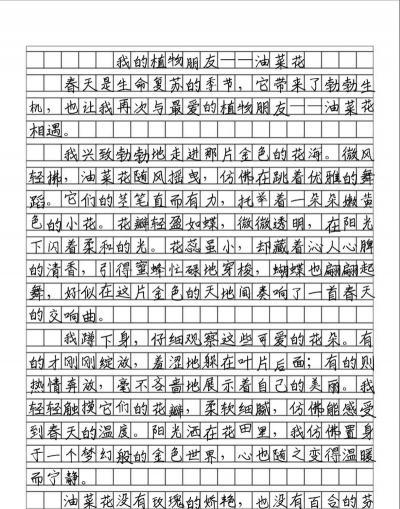 我的植物朋友——油菜花
春天是生命复苏的季节，它带来了勃勃生
机，也让我再次与最爱的植物朋友——油菜花
相遇。
我兴致勃勃地走进那片金色的花海。微风
轻拂，油菜花随风摇曳，仿佛在跳着优雅的舞
蹈。它们的茎笔直而有力，托举着一朵朵嫩黄
色的小花。花瓣轻盈如蝶，微微透明，在阳光
下闪着柔和的光。花蕊虽小，却藏着沁人心脾
的清香，引得蜜蜂忙碌地穿梭，蝴蝶也翩翩起
舞，好似在这片金色的天地间奏响了一首春天
的交响曲。
我蹲下身，仔细观察这些可爱的花朵。有
的才刚刚绽放，羞涩地躲在叶片后面；有的则
热情奔放，毫不吝啬地展示着自己的美丽。我
轻轻触摸它们的花瓣，柔软细腻，仿佛能感受
到春天的温度。阳光洒在花田里，我仿佛置身
于一个梦幻般的金色世界，心也随之变得温暖
而宁静。
油菜花没有玫瑰的娇艳，也没有百合的芬